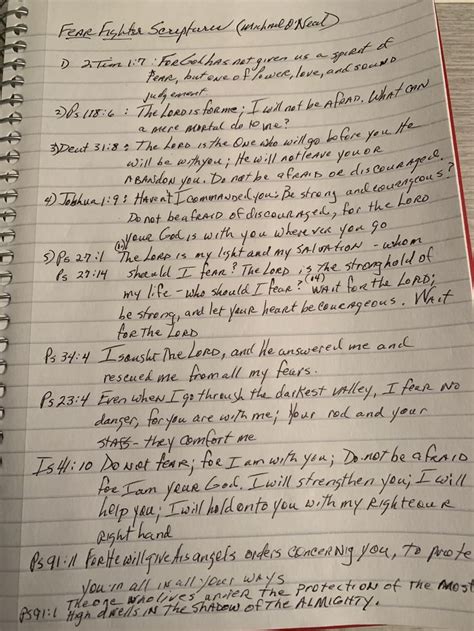 FEAR Fighter Scriptures (Michael O'Neal)
1) 2 Tim 1:7: For God has not given us a spirit of
FEAR, but one of power, love, and sound
judgement
2) Ps 118:6: The LORD is for me; I will not be AfRAid. What CAN
a mere mortal do to me?
3) Deut 31:8: The LORD is the One who will go before you He
will be with you; He will not leave you or
ABANdon you. Do not be afRAid or discouraged.
4) Joshua 1:9: Haven't I commanded you: Be strong and courageous?
Do not be afraid of discouraged, for the LORD
your God is with you wherever you go
5) Ps 27:1 (1) The LORD is my light and my SALVATION - whom
Ps 27:14 should I fear? The LORD is the stronghold of
my life - who should I fear? (14) WAit for the LORD;
be strong, and let your heart be courageous. Wait
for the LORD
Ps 34:4 I sought the LORD, and He answered me and
rescued me from all my fears.
Ps 23:4 Even when I go through the darkest valley, I fear NO
danger, for you are with me; your rod and your
staff - they comfort me
Is 41:10 Do not fear; for I am with you; Do not be afraid
for I am your God. I will strengthen you; I will
help you; I will hold onto you with my Righteour
Right hand
Ps 91:11 For He will give His angels orders concernig you, to prote
you in all in all your ways
Ps 91:1 The one who lives under the protection of the most
High dwells in the shadow of the ALMIGHTY.